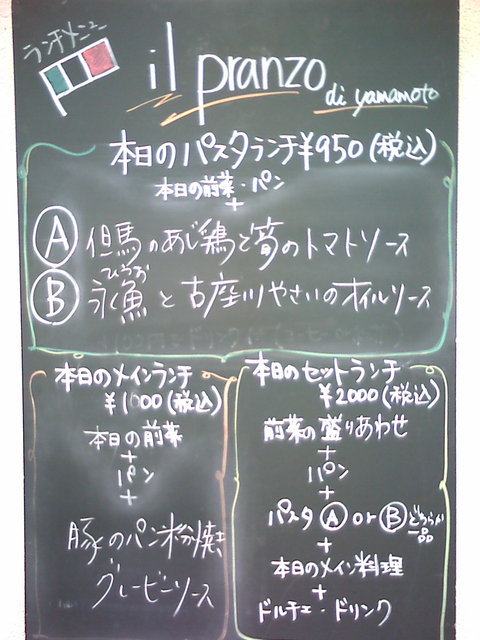 ランチメニュー
il pranzo
di yamamoto
本日のパスタランチ¥950(税込)
本日の前菜・パン
+
Ⓐ 但馬のあじ鶏と筍のトマトソース
ひうお
Ⓑ 氷魚と古座川やさいのオイルソース
本日のメインランチ
¥1000(税込)
本日の前菜
+
パン
+
豚のパン粉焼き
グレービーソース
本日のセットランチ
¥2000(税込)
前菜の盛りあわせ
+
パン
+
パスタ Ⓐ or Ⓑ どちらか一品
+
本日のメイン料理
+
ドルチェ・ドリンク